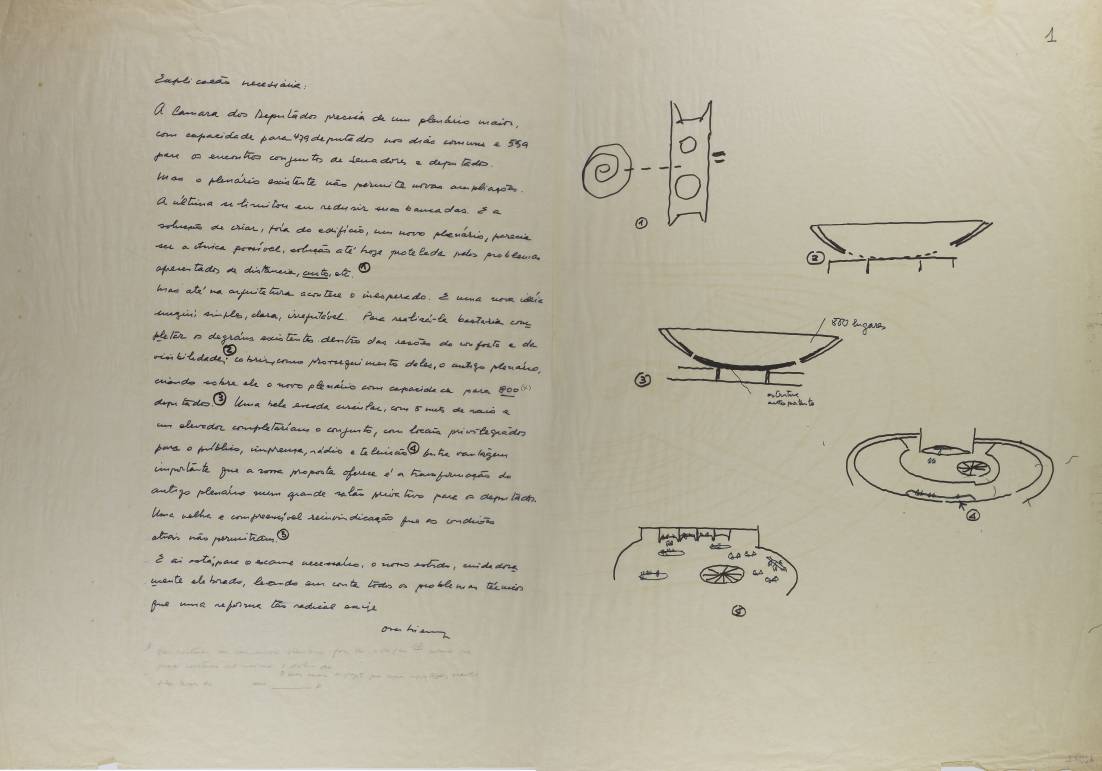 Explicação necessária:
A Camara dos Deputados precisa de um plenário maior,
com capacidade para 479 deputados nos dias comuns e 559
para os encontros conjuntos de senadores e deputados.
Mas o plenário existente não permite novas ampliações.
A última se limitou em reduzir suas bancadas. E a
solução de criar, fóra do edifício, um novo plenário, parecia
ser a única possível, solução até hoje protelada pelos problemas
apresentados de distância, custo, etc. 1
Mas até na arquitetura acontece o inesperado. E uma nova idéia
surgiu simples, clara, irrefutável. Para realizá-la bastaria com
pletar os degráus existentes dentro das razões do conforto e da
visibilidade; 2 cobrir, como prosseguimento deles, o antigo plenário,
criando sobre ele o novo plenário com capacidade para 800 (x)
deputados. 3 Uma bela escada circular, com 5 mts de raio e
um elevador completariam o conjunto, com locais privilegiados
para o público, imprensa, rádio e televisão 4 Outra vantagem
importante que a nova proposta oferece é a transformação do
antigo plenário num grande salão privativo para os deputados.
Uma velha e compreensível reinvindicação que as condições
atuais não permitiram. 5
E ai está, para o exame necessário, o novo estudo, cuidadosa
mente elaborado, levando em conta todos os problemas técnicos
que uma reforma tão radical exige
1
=
1
2
880 lugares
3
estrutura
auto portante
4
5